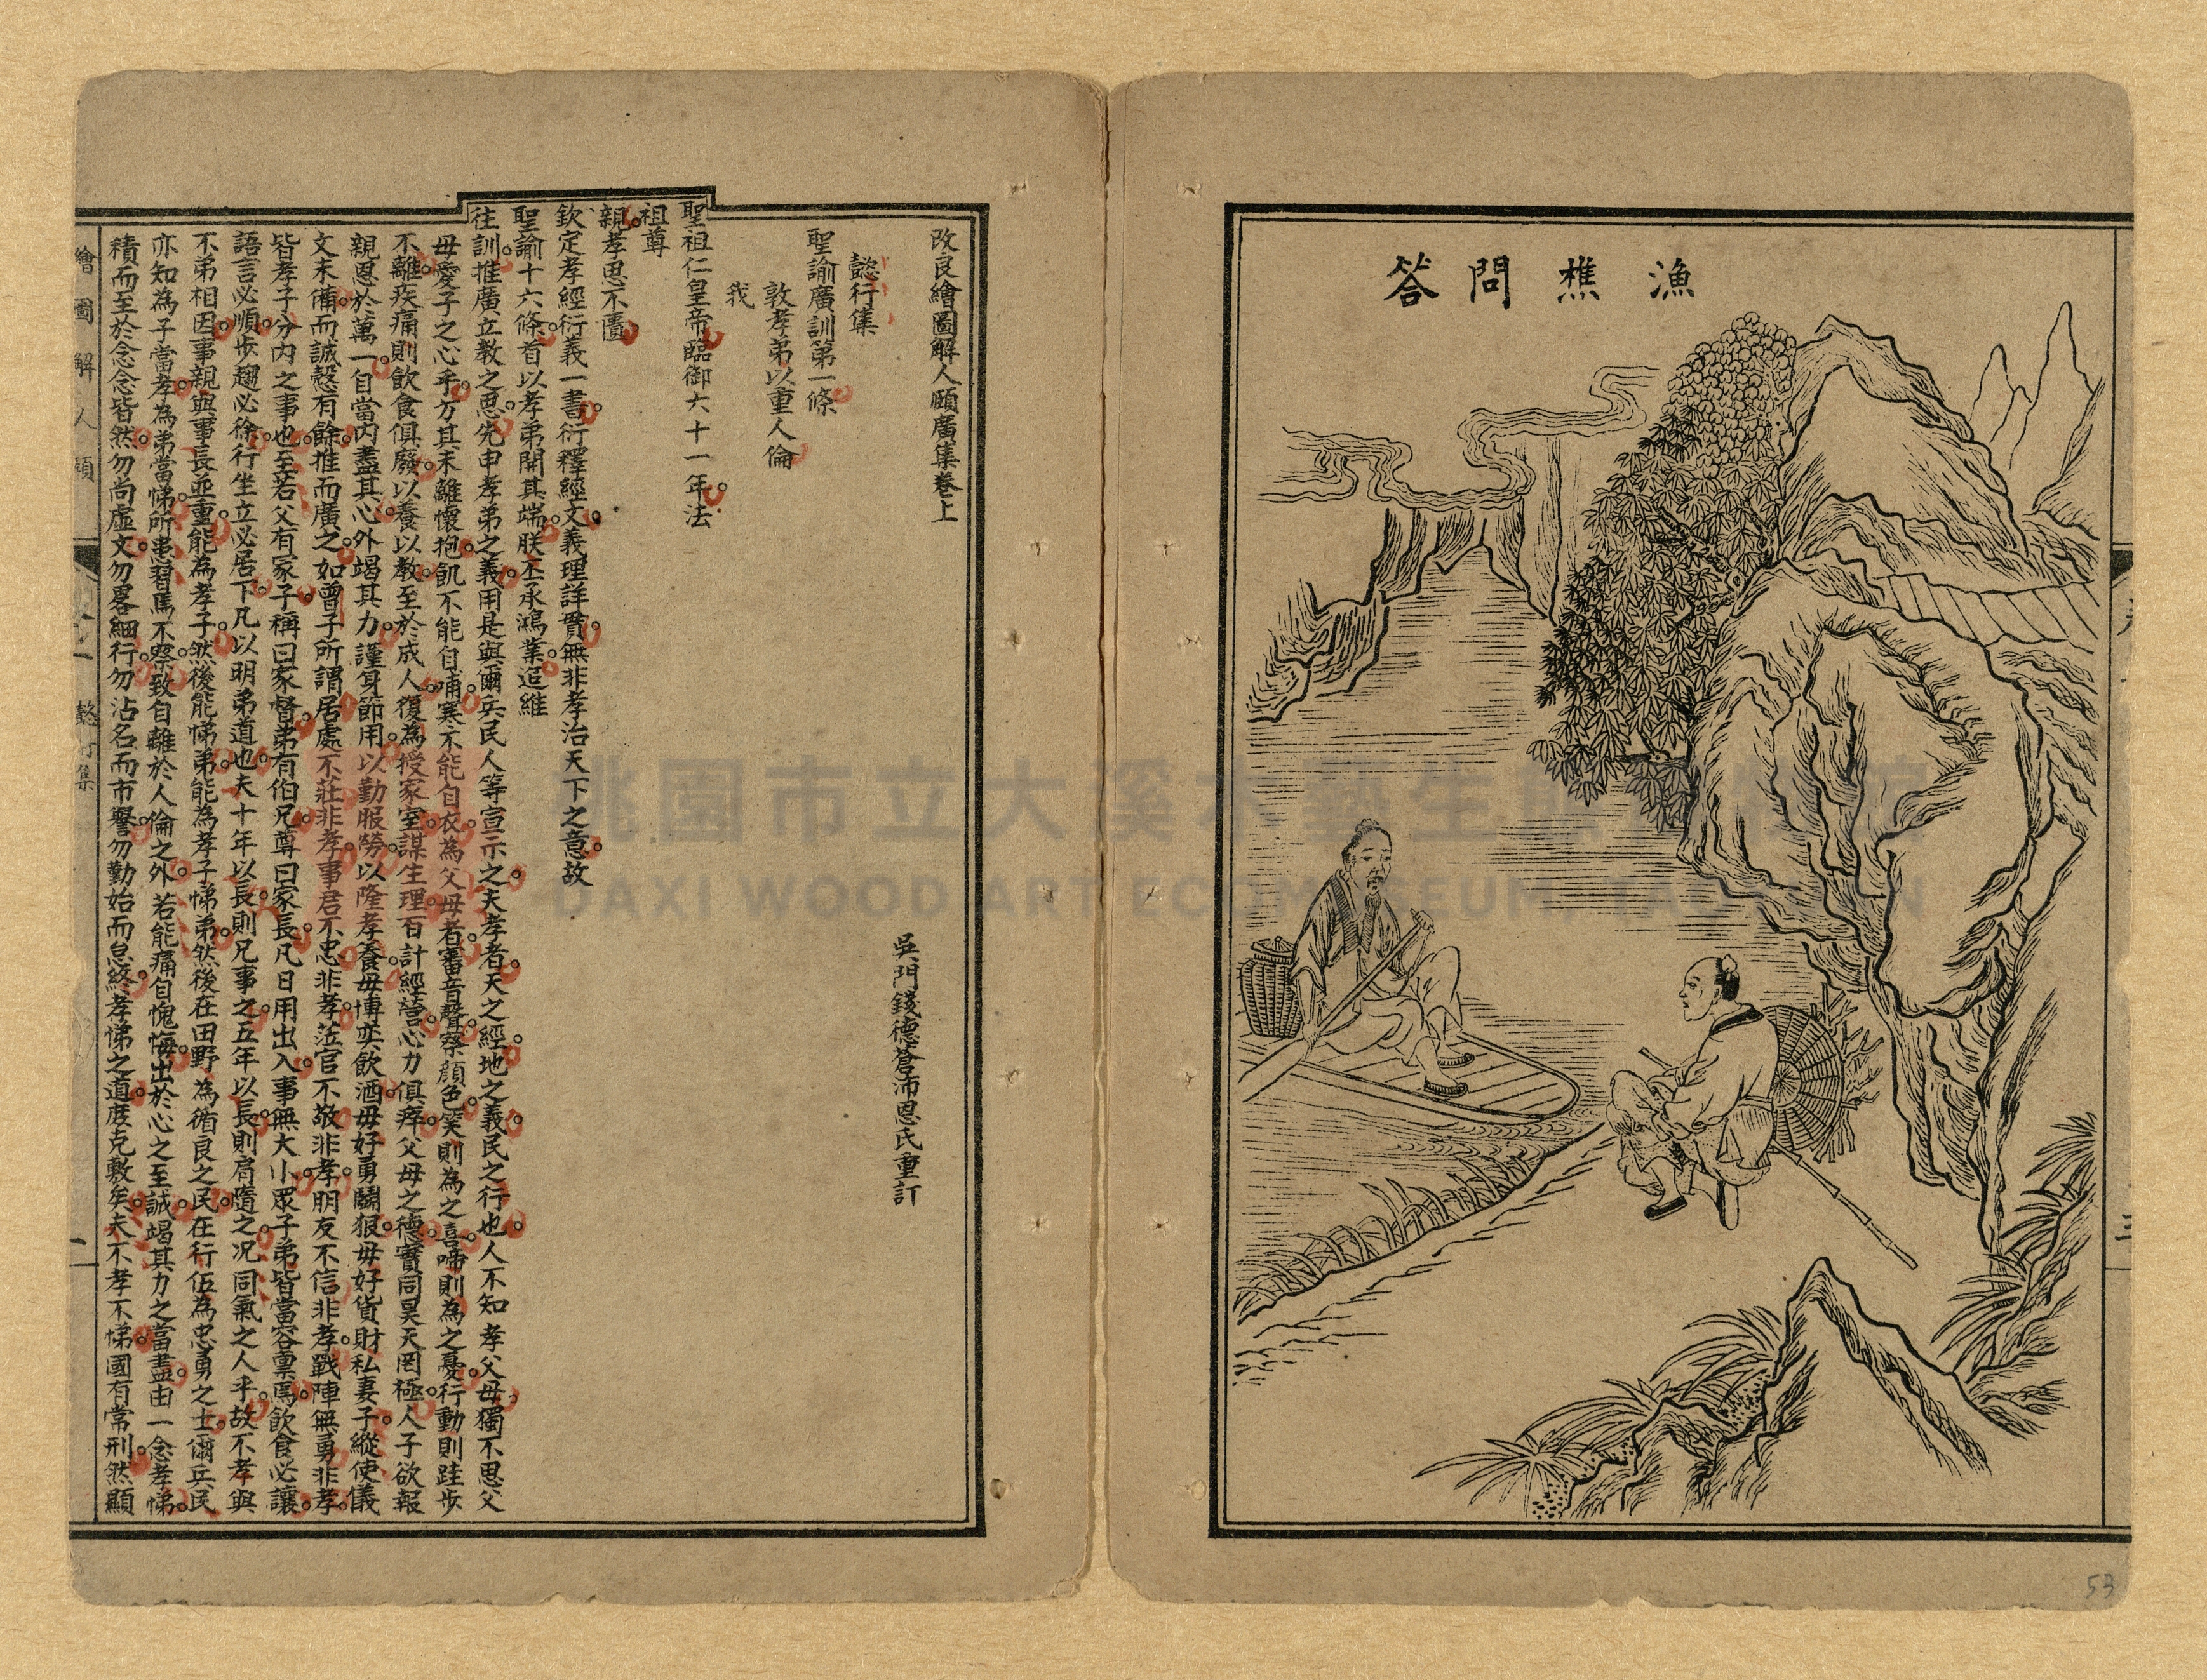 漁樵問答
三
53
改良繪圖解人頤廣集卷上
吳門錢德蒼沛恩氏重訂
懿行集
聖諭廣訓第一條
敦孝弟以重人倫
我
聖祖仁皇帝臨御六十一年法
祖尊
親孝思不匱
欽定孝經衍義一書衍釋經文義理詳貫無非孝治天下之意故
聖諭十六條首以孝弟開其端朕丕承鴻業追維
往訓推廣立教之思先申孝弟之義用是與爾兵民人等宣示之夫孝者天之經地之義民之行也人不知孝父母獨不思父
母愛子之心乎方其未離懷抱飢不能自哺寒不能自衣為父母者審音聲察顏色笑則為之喜啼則為之憂行動則跬步
不離疾痛則飲食俱廢以養以教至於成人復為授家室謀生理百計經營心力俱瘁父母之德實同昊天罔極人子欲報
親恩於萬一自當內盡其心外竭其力謹身節用以勤服勞以隆孝養毋博奕飲酒毋好勇鬪狠毋好貨財私妻子縱使儀
文未備而誠慤有餘推而廣之如曾子所謂居處不莊非孝事君不忠非孝蒞官不敬非孝朋友不信非孝戰陣無勇非孝
皆孝子分內之事也至若父有冢子稱曰家督弟有伯兄尊曰家長凡日用出入事無大小眾子弟皆當咨稟焉飲食必讓
語言必順步趨必徐行坐立必居下凡以明弟道也夫十年以長則兄事之五年以長則肩隨之况同氣之人乎故不孝與
不弟相因事親與事長並重能為孝子然後能悌弟能為孝子悌弟然後在田野為循良之民在行伍為忠勇之士爾兵民
亦知為子當孝為弟當悌所患習焉不察致自離於人倫之外若能痛自愧悔出於心之至誠竭其力之當盡由一念孝悌
積而至於念念皆然勿尚虛文勿畧細行勿沽名而市譽勿勤始而怠終孝悌之道庶克敦矣夫不孝不悌國有常刑然顯
繪圖解人頤
懿行集
一
桃園市立大溪木藝生態博物館
DAXI WOOD ART ECOMUSEUM, TAOYUAN